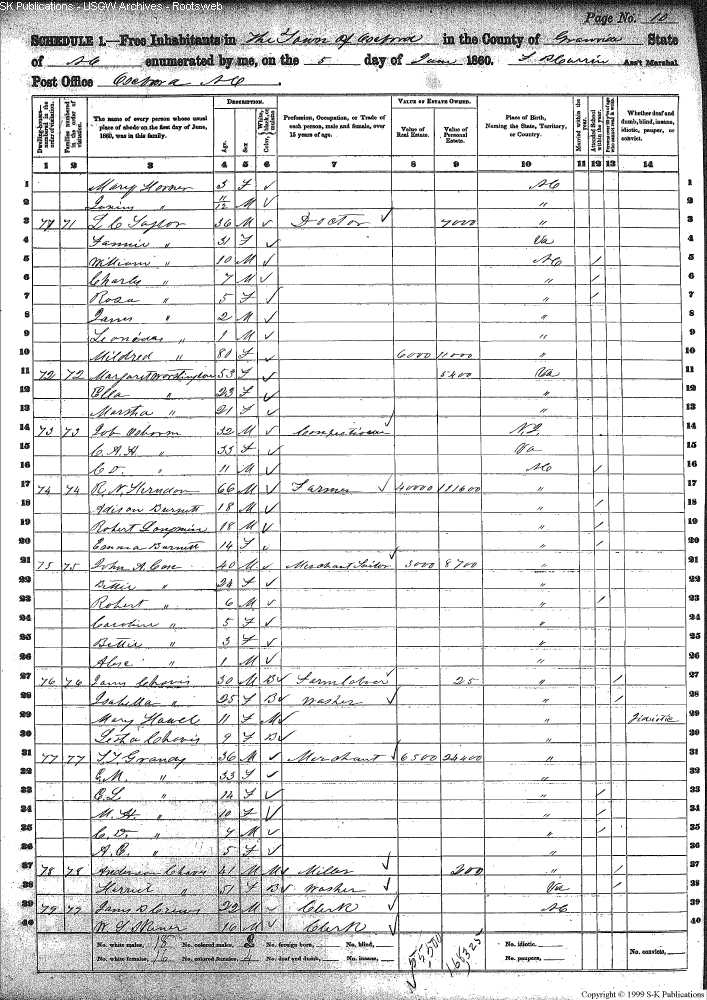 SK Publications - USGW Archives - Rootsweb
Page No. 10
SCHEDULE 1.—Free Inhabitants in The Town of Oxford in the County of Granville State
of NC enumerated by me, on the 5 day of June 1860. Ass't Marshal
Post Office Oxford NC
DESCRIPTION. VALUE OF ESTATE OWNED.
Dwelling-house— numbered in the order of visitation.
Families numbered in the order of visitation.
The name of every person whose usual place of abode on the first day of June, 1860, was in this family.
Age. Sex
Profession, Occupation, or Trade of each person, male and female, over 15 years of age.
Value of Real Estate. Value of Personal Estate.
Place of Birth, Naming the State, Territory, or Country.
Married within the year. Attended School within the year.
Whether deaf and dumb, blind, insane, idiotic, pauper, or convict.
1 2 3 4 5 6 7 8 9 10 11 12 13 14
1 Mary Horner 3 F ✓ NC 1
2 Junius " 11/12 M ✓ " 2
3 71 71 L C Taylor 36 M ✓ Doctor ✓ 7000 " 3
4 Fannie " 31 F ✓ Va 4
5 William " 10 M ✓ NC / 5
6 Charly " 7 M ✓ " / 6
7 Rosa " 5 F ✓ " / 7
8 James " 2 M ✓ " 8
9 Leonidas " 1 M ✓ " 9
10 Mildred " 80 F ✓ 6000 11000 " 10
11 72 72 Margaret Worthington 53 F ✓ 5400 Va 11
12 Ella " 23 F ✓ " 12
13 Martha " 21 F ✓ " 13
14 73 73 Job Osborn 32 M ✓ Confectioner ✓ N.J. 14
15 C. A. H " 33 F ✓ Va 15
16 C. D. " 11 M ✓ NC / 16
17 74 74 R. N. Herndon 66 M ✓ Farmer ✓ 40000 111600 " 17
18 Adison Burnett 18 M ✓ " / 18
19 Robert Longmire 18 M ✓ " / 19
20 Emma Burnett 14 F ✓ " / 20
21 75 75 John A. Cose 40 M ✓ Merchant Tailor ✓ 3000 8700 " 21
22 Bettie " 24 F ✓ " 22
23 Robert " 6 M ✓ " / 23
24 Caroline " 5 F ✓ " 24
25 Bettie " 3 F ✓ " 25
26 " 1 M ✓ " 26
27 76 76 James Chavis 30 M B✓ Farm Labor ✓ 25 " / 27
28 Isabella " 25 F B✓ Washer ✓ " / 28
29 Mary Hawel 11 F M✓ " Idiotic 29
30 Letha Chavis 9 F B✓ " 30
31 77 77 L. T. Grandy 36 M ✓ Merchant ✓ 6500 24400 " 31
32 E. M. " 33 F ✓ " 32
33 E. L. " 14 F ✓ " / 33
34 M. H. " 10 F ✓ " / 34
35 C. D. " 7 M ✓ " / 35
36 A. C. " 5 F ✓ " 36
37 78 78 Anderson Chavis 41 M M✓ Miller ✓ 200 " / 37
38 Harriet " 51 F B✓ Washer ✓ Va / 38
39 79 79 James D Crews 22 M ✓ Clerk ✓ NC 39
40 W. L. Skiner 16 M ✓ Clerk ✓ 40
No. white males, 18 No. colored males, 2 No. foreign born, No. blind, 55,500 168325 No. idiotic, No. convicts,
No. white females, 16 No. colored females, 4 No. deaf and dumb, No. insane, No. paupers,
Copyright © 1999 S-K Publications